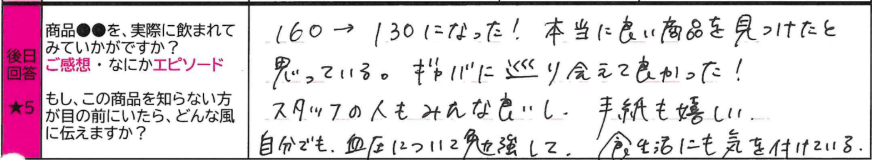 後日
回答
★5
商品●●を、実際に飲まれて
みていかがですか?
ご感想・なにかエピソード
もし、この商品を知らない方
が目の前にいたら、どんな風
に伝えますか?
160→130になった! 本当に良い商品を見つけたと
思っている。ギャバに巡り会えて良かった!
スタッフの人もみんな良いし、手紙も嬉しい。
自分でも、血圧について勉強して、食生活にも気を付けている。